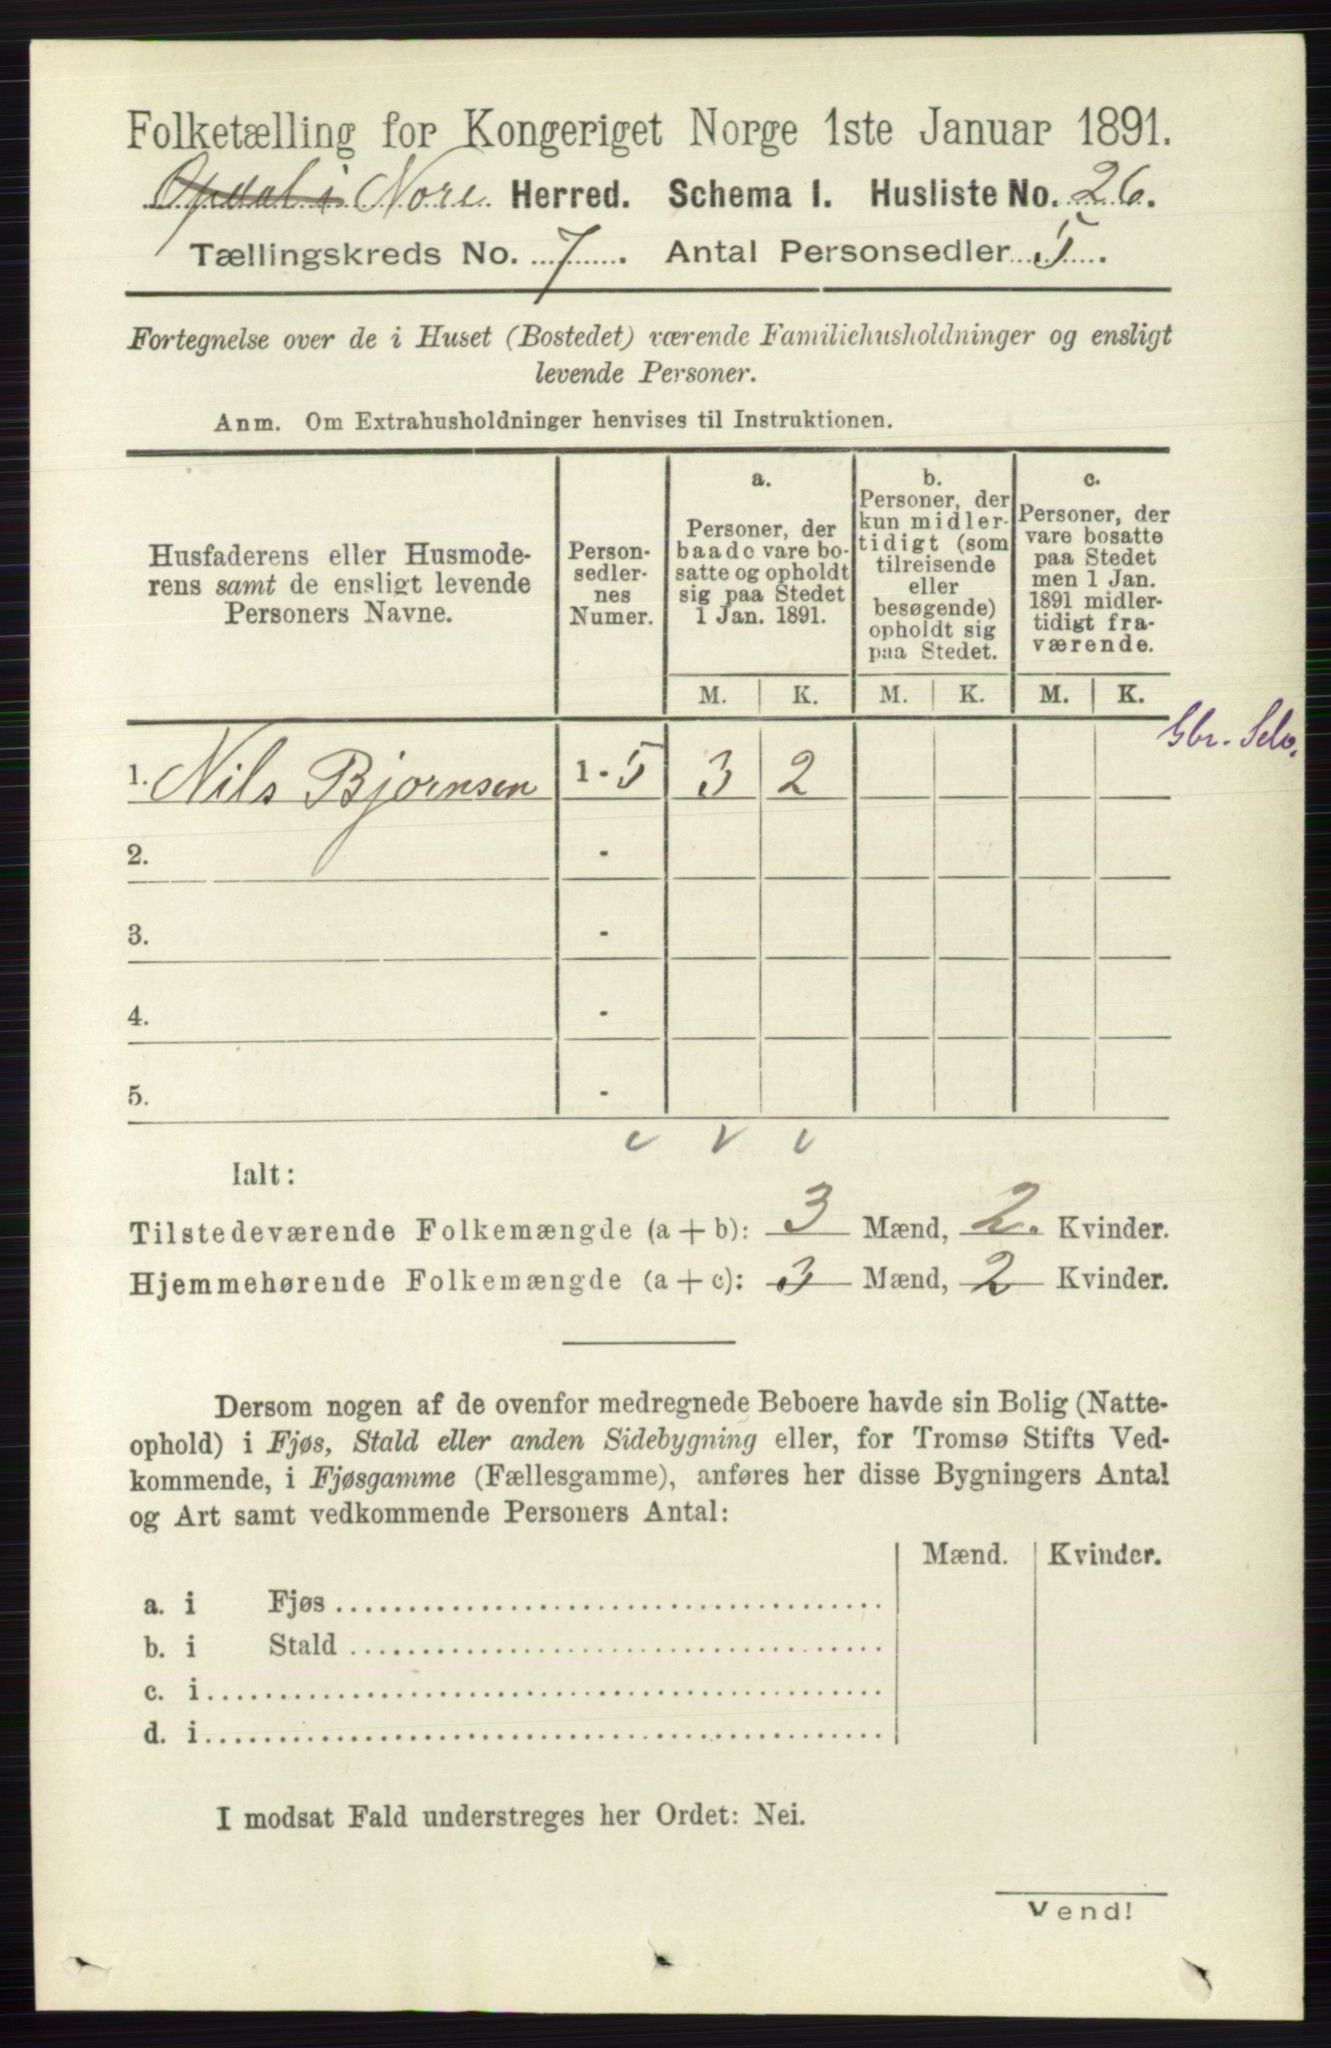 Folketælling for Kongeriget Norge 1ste Januar 1891.
Opdal i Nore Herred. Schema I. Husliste No. 26.
Tællingskreds No. 7. Antal Personsedler 5.
Fortegnelse over de i Huset (Bostedet) værende Familiehusholdninger og ensligt
levende Personer.
Anm. Om Extrahusholdninger henvises til Instruktionen.
Husfaderens eller Husmode-
rens samt de ensligt levende
Personers Navne.
Person-
sedler-
nes
Numer.
a.
Personer, der
baade vare bo-
satte og opholdt
sig paa Stedet
1 Jan. 1891.
b.
Personer, der
kun midler-
tidigt (som
tilreisende
eller
besøgende)
opholdt sig
paa Stedet.
c.
Personer, der
vare bosatte
paa Stedet
men 1 Jan.
1891 midler-
tidigt fra-
værende.
M. K. M. K. M. K.
Gbr. Selv.
1. Nils Bjornsen 1 - 5 3 2
2. -
3. -
4. -
5. -
Ialt:
Tilstedeværende Folkemængde (a + b): 3 Mænd, 2. Kvinder.
Hjemmehørende Folkemængde (a + c): 3 Mænd, 2 Kvinder.
Dersom nogen af de ovenfor medregnede Beboere havde sin Bolig (Natte-
ophold) i Fjøs, Stald eller anden Sidebygning eller, for Tromsø Stifts Ved-
kommende, i Fjøsgamme (Fællesgamme), anføres her disse Bygningers Antal
og Art samt vedkommende Personers Antal:
Mænd. Kvinder.
a. i Fjøs
b. i Stald
c. i
d. i
I modsat Fald understreges her Ordet: Nei.
Vend!